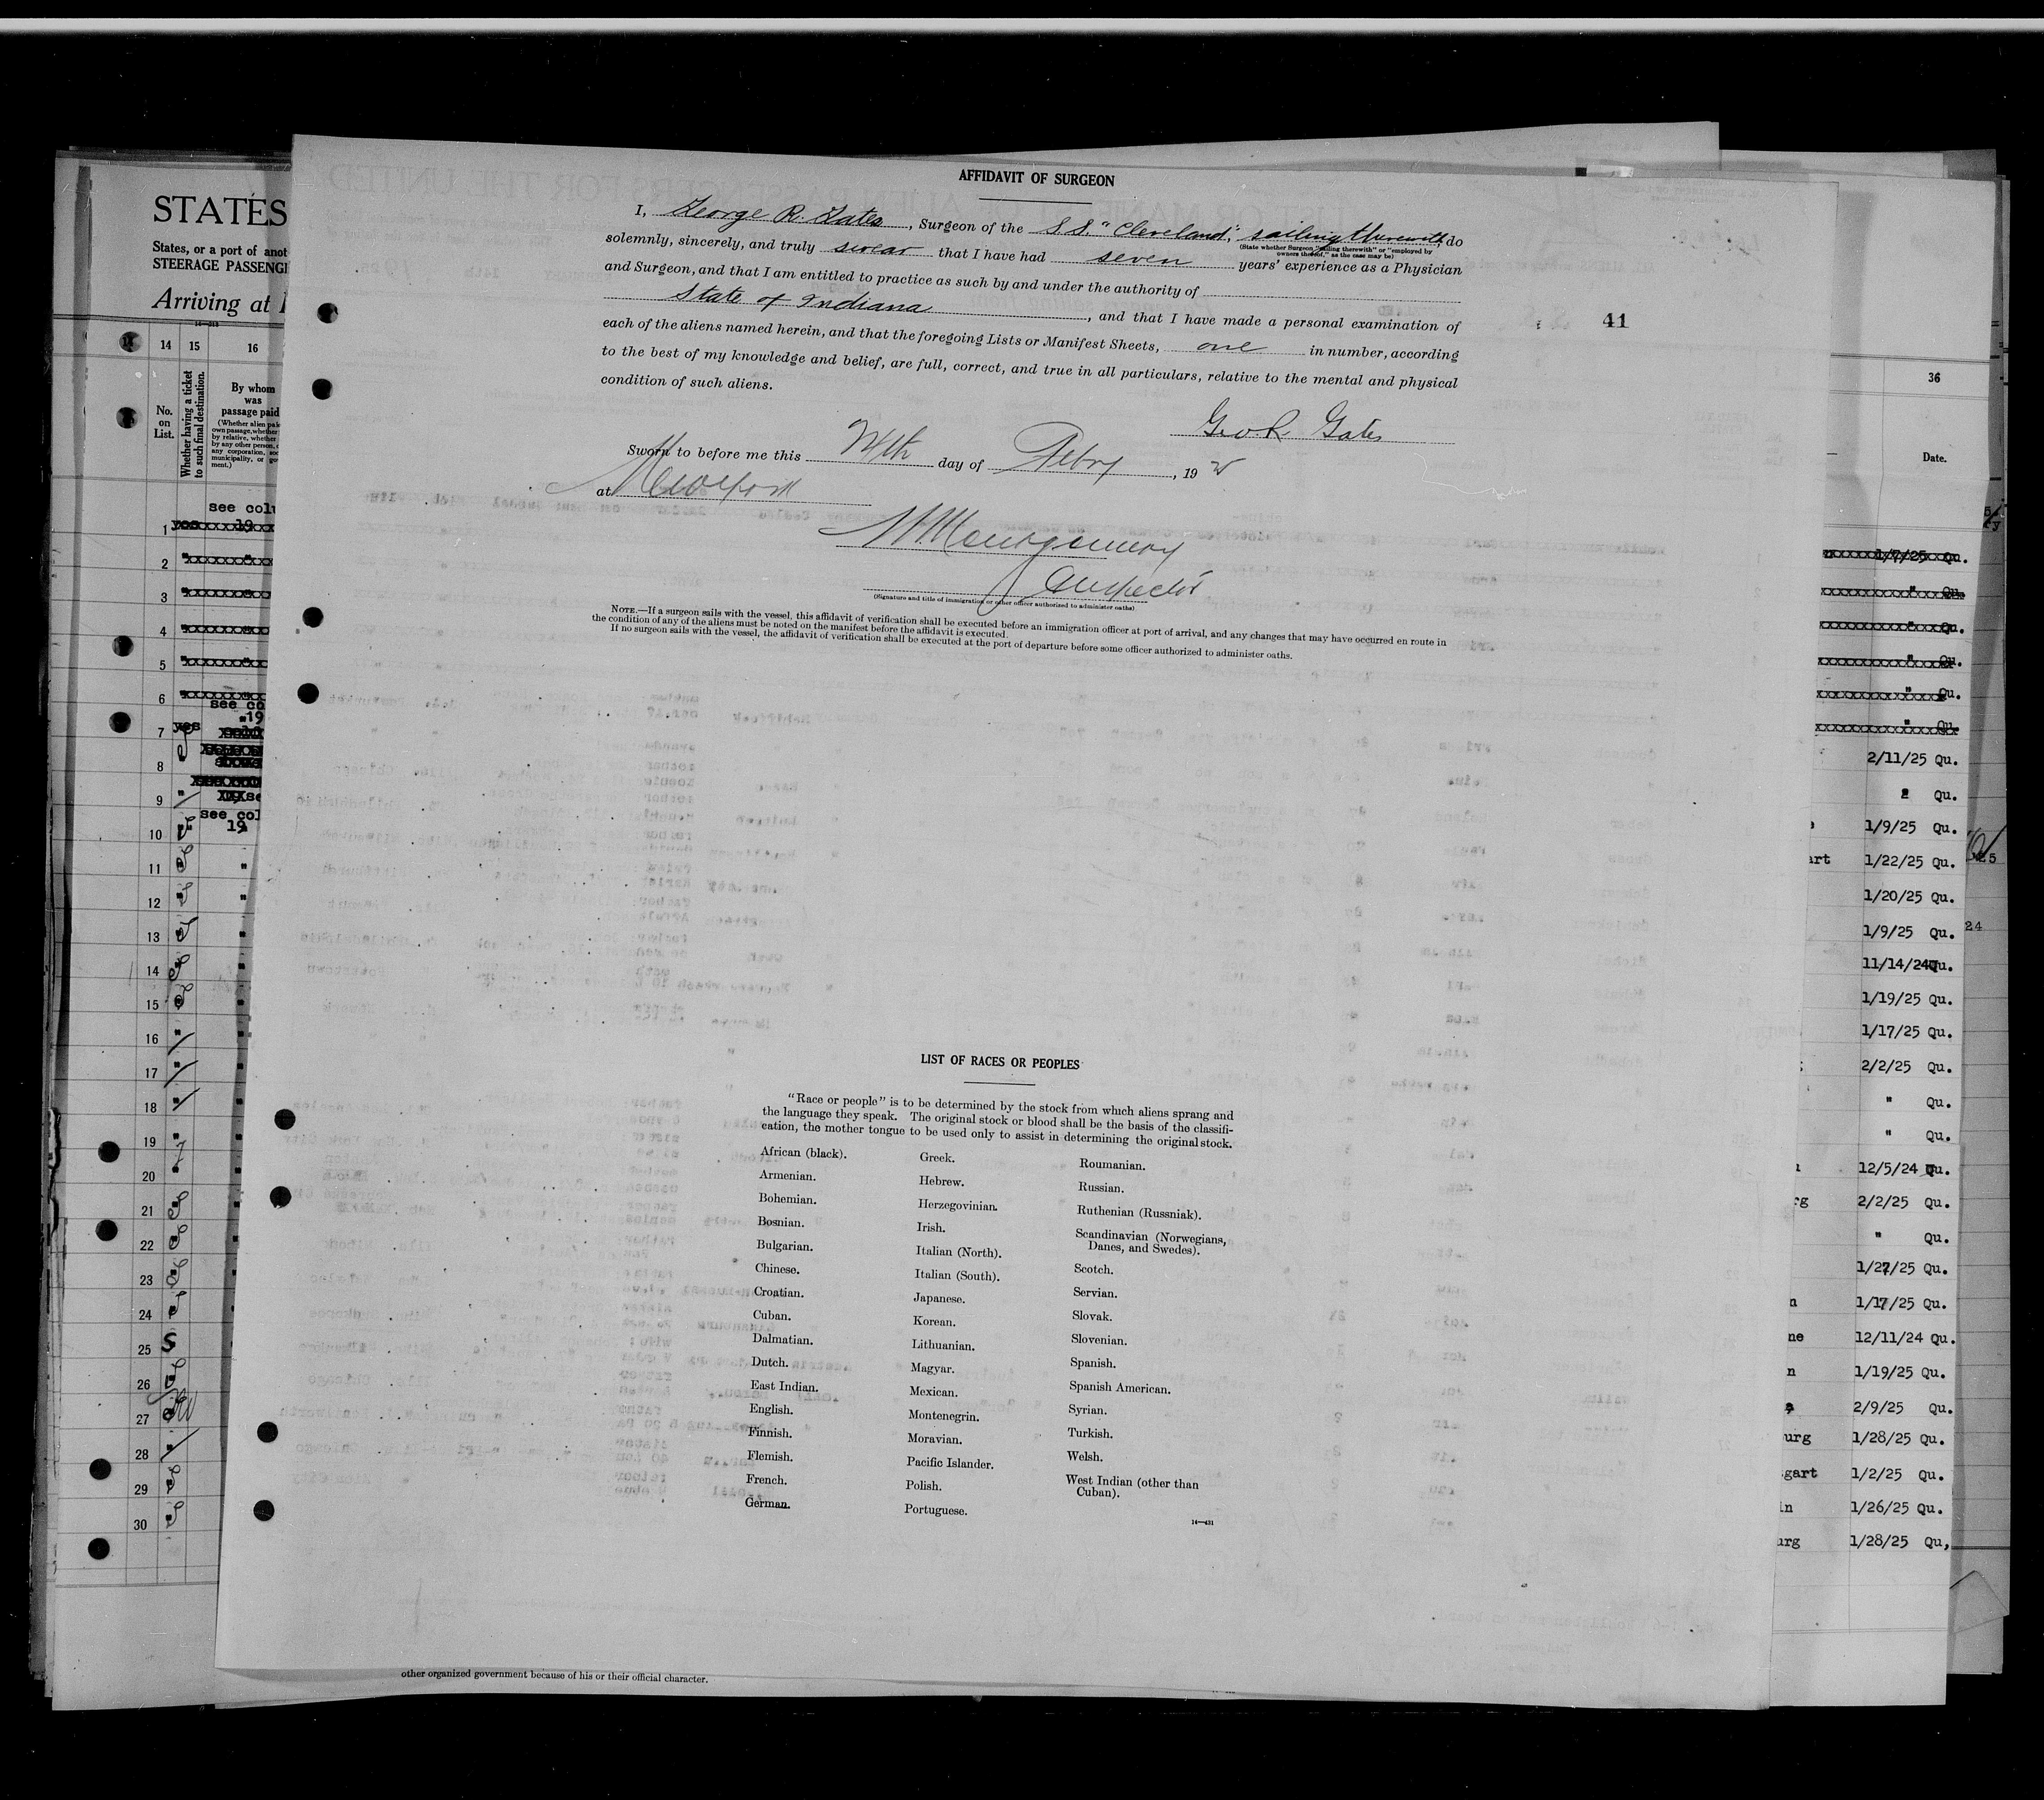 AFFIDAVIT OF SURGEON
I, George R. Gates, Surgeon of the S.S. "Cleveland", sailing therewith, do
(State whether Surgeon "sailing therewith" or "employed by
owners thereof," as the case may be)
solemnly, sincerely, and truly swear that I have had seven years' experience as a Physician
and Surgeon, and that I am entitled to practice as such by and under the authority of
State of Indiana, and that I have made a personal examination of
each of the aliens named herein, and that the foregoing Lists or Manifest Sheets, one in number, according
to the best of my knowledge and belief, are full, correct, and true in all particulars, relative to the mental and physical
condition of such aliens.
41
Geo. R. Gates
Sworn to before me this day of Febry, 19
at New York
Montgomery
Inspector
(Signature and title of immigration or other officer authorized to administer oaths)
NOTE.—If a surgeon sails with the vessel, this affidavit of verification shall be executed before an immigration officer at port of arrival, and any changes that may have occurred en route in
the condition of any of the aliens must be noted on the manifest before the affidavit is executed.
If no surgeon sails with the vessel, the affidavit of verification shall be executed at the port of departure before some officer authorized to administer oaths.
LIST OF RACES OR PEOPLES
"Race or people" is to be determined by the stock from which aliens sprang and
the language they speak. The original stock or blood shall be the basis of the classifi-
cation, the mother tongue to be used only to assist in determining the original stock.
African (black).
Armenian.
Bohemian.
Bosnian.
Bulgarian.
Chinese.
Croatian.
Cuban.
Dalmatian.
Dutch.
East Indian.
English.
Finnish.
Flemish.
French.
German.
Greek.
Hebrew.
Herzegovinian.
Irish.
Italian (North).
Italian (South).
Japanese.
Korean.
Lithuanian.
Magyar.
Mexican.
Montenegrin.
Moravian.
Pacific Islander.
Polish.
Portuguese.
Roumanian.
Russian.
Ruthenian (Russniak).
Scandinavian (Norwegians,
Danes, and Swedes).
Scotch.
Servian.
Slovak.
Slovenian.
Spanish.
Spanish American.
Syrian.
Turkish.
Welsh.
West Indian (other than
Cuban).
14—431
other organized government because of his or their official character.
STATES
States, or a port of anot
STEERAGE PASSENG
Arriving at
14 15 16
No.
on
List.
Whether having a ticket
to such final destination.
By whom
was
passage paid
(Whether alien paid
own passage, whether
by relative, whether
by any other person,
any corporation, soc
municipality, or gov
ment.)
see colu
1 yes 19
2
3
4
5
6
see co
19
7 yes
8
9
see col
10 19
11
12
13
14
15
16
17
18
19
20
21
22
23
24
25 S
26
27
28
29
30
36
Date.
1/7/25 Qu.
" Qu.
" Qu.
" Qu.
" Qu.
" Qu.
2/11/25 Qu.
Qu.
1/9/25 Qu.
art 1/22/25 Qu.
1/20/25 Qu.
1/9/25 Qu.
11/14/24 Qu.
1/19/25 Qu.
1/17/25 Qu.
2/2/25 Qu.
" Qu.
" Qu.
12/5/24 Qu.
rg 2/2/25 Qu.
" Qu.
1/27/25 Qu.
n 1/17/25 Qu.
ne 12/11/24 Qu.
n 1/19/25 Qu.
2/9/25 Qu.
urg 1/28/25 Qu.
gart 1/2/25 Qu.
in 1/26/25 Qu.
urg 1/28/25 Qu,
25
24